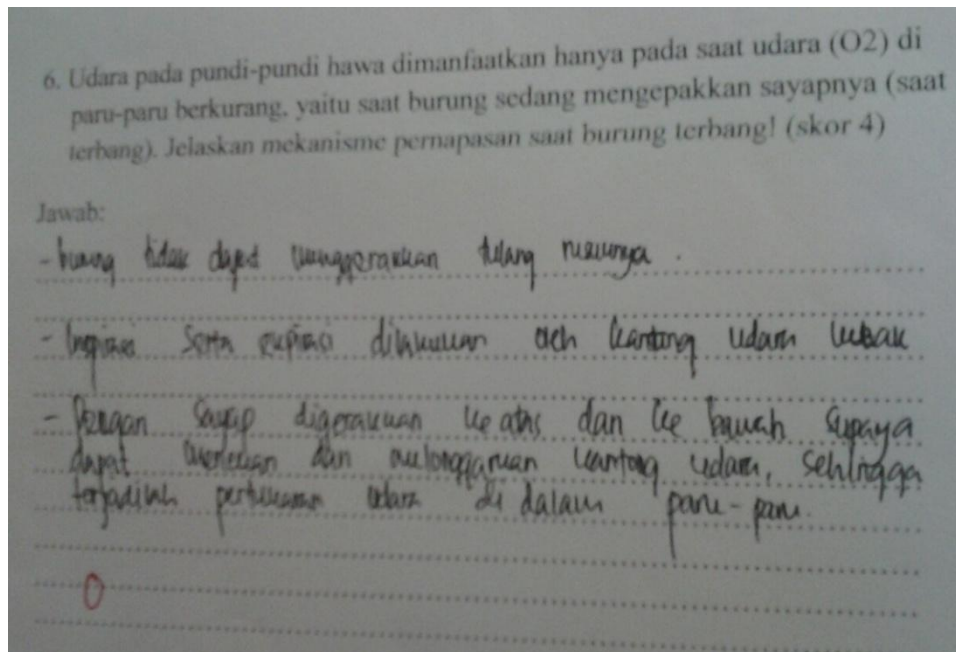 6. Udara pada pundi-pundi hawa dimanfaatkan hanya pada saat udara (O2) di
paru-paru berkurang, yaitu saat burung sedang mengepakkan sayapnya (saat
terbang). Jelaskan mekanisme pernapasan saat burung terbang! (skor 4)
Jawab:
- burung tidak dapat menggerakkan tulang rusuknya.
- Inspirasi serta ekspirasi dilakukan oleh kantong udara
- Dengan sayap digerakkan ke atas dan ke bawah supaya
dapat menekan dan melonggarkan kantong udara, sehingga
terjadilah pertukaran udara di dalam paru-paru.
0